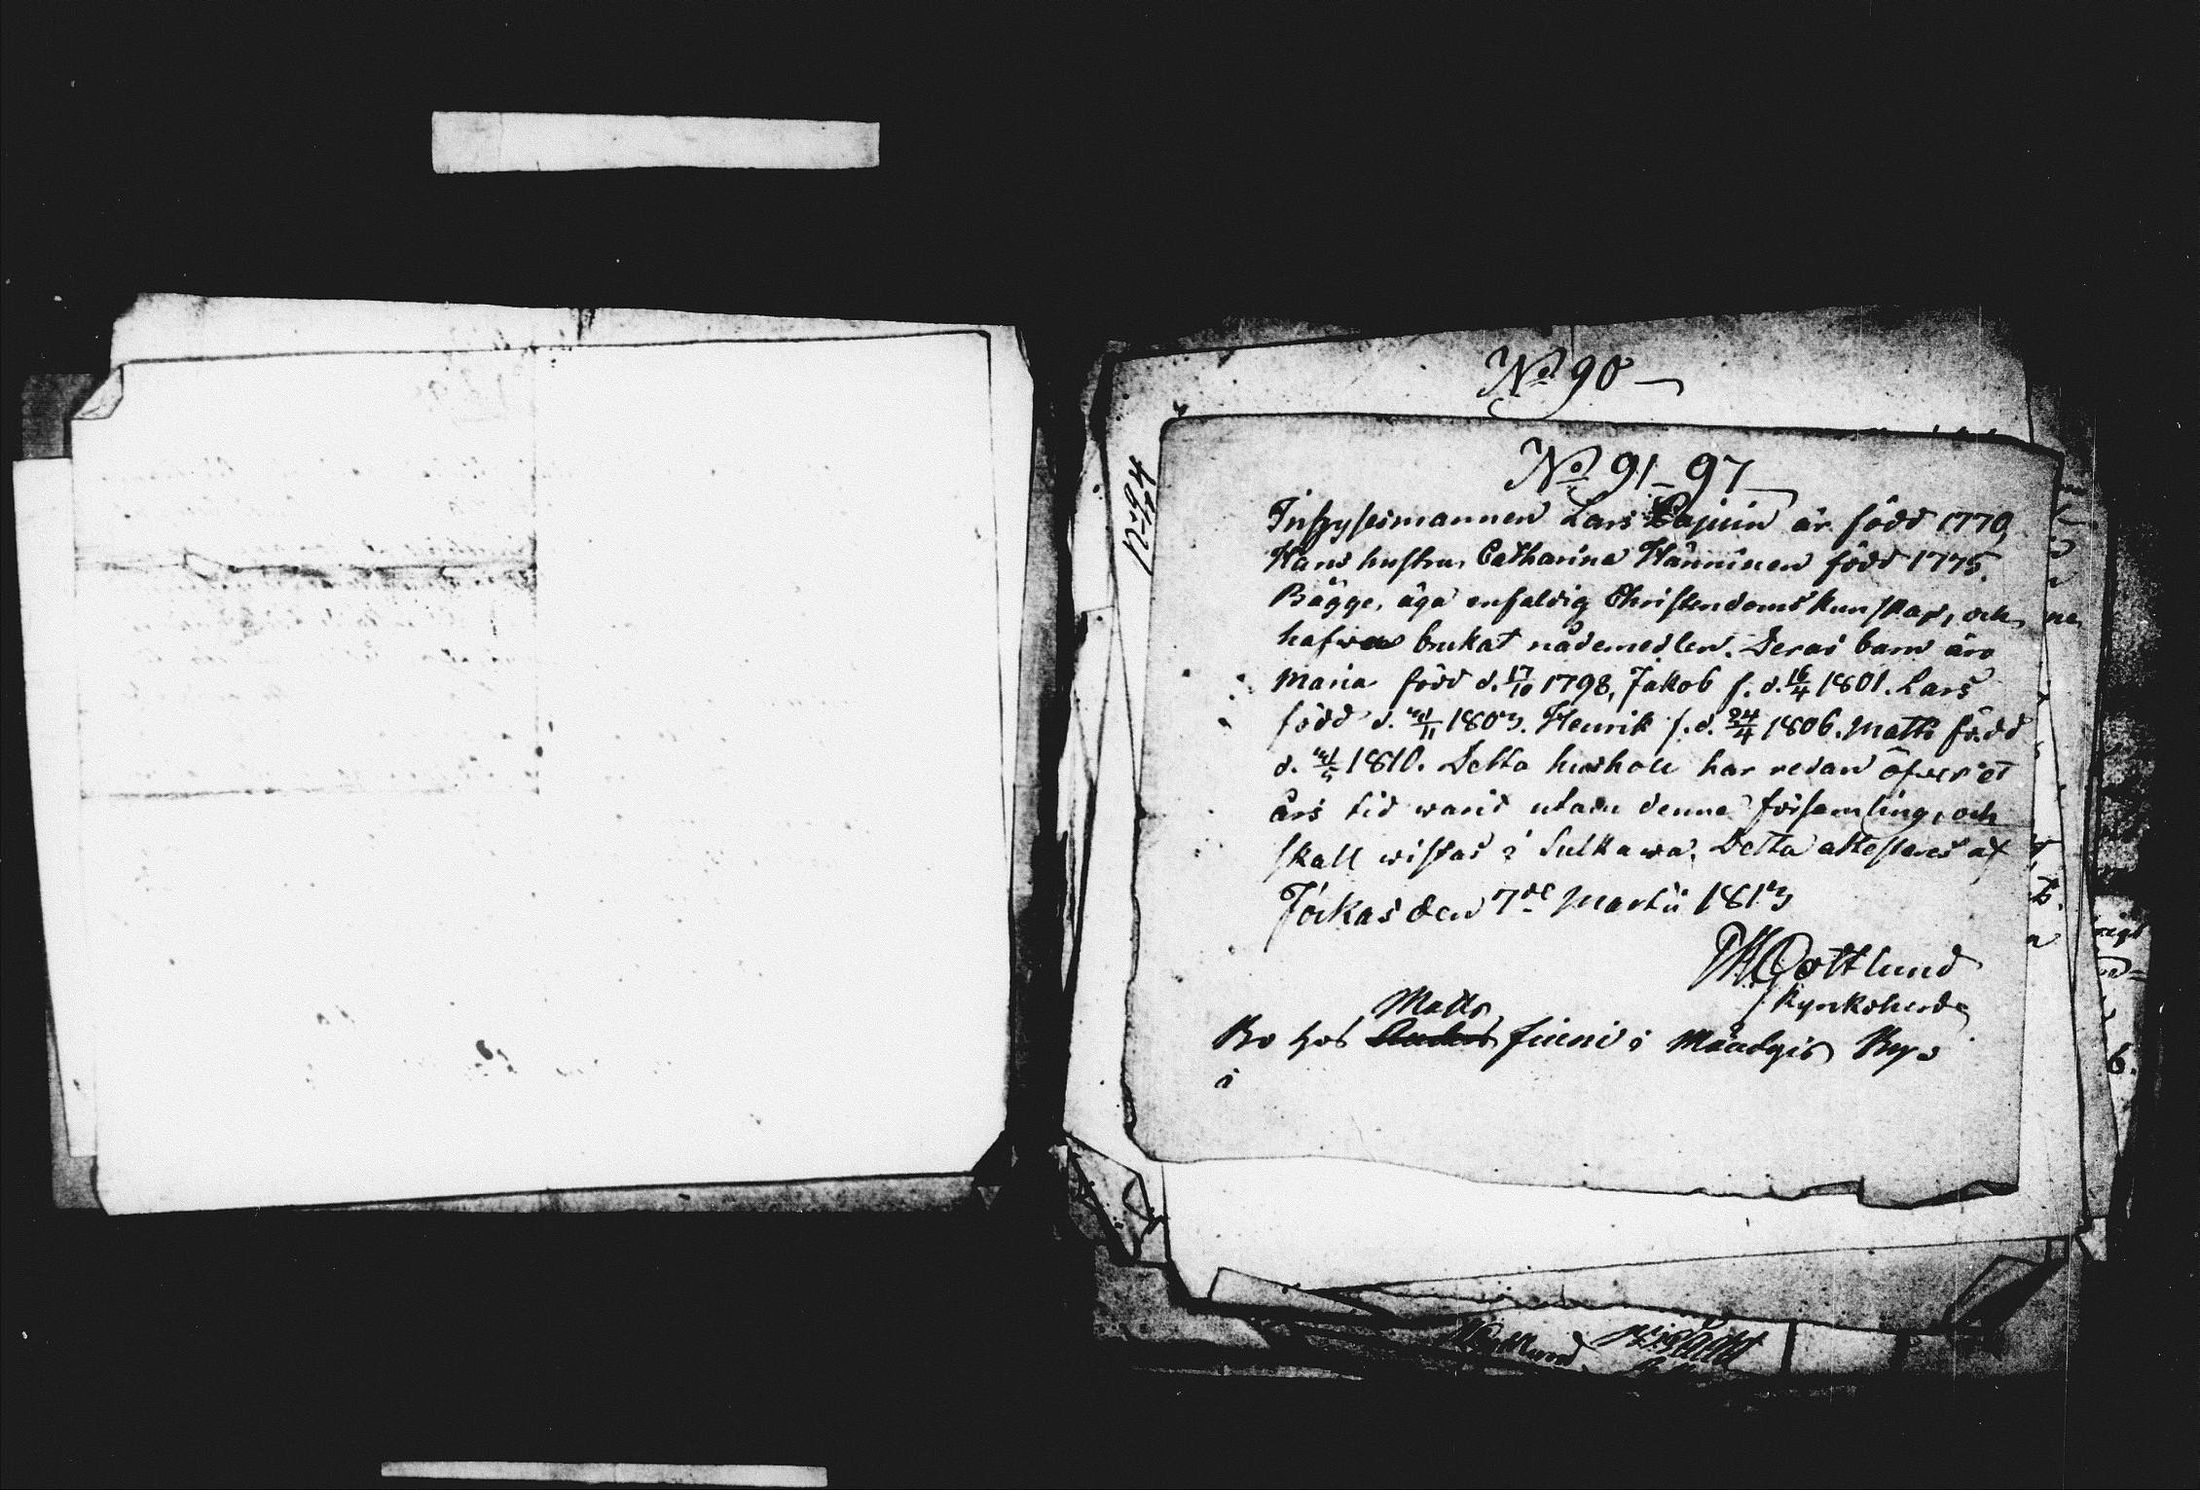 No 90
No 91-97
Inhysesmannen Lars Lajuin är född 1770,
Hans hustru Catharina Hänninen född 1775.
Bägge äga enfaldig Christendoms kunskap, och
hafwa brukat nådemedlen. Deras barn äro
Maria född d. 17/10 1798, Jakob f. d. 16/4 1801. Lars
född d. 1803. Henrik f. d. 24/4 1806. Matts född
d. 1810. Detta hushåll har redan öfwer et
års tid warit utom denna församling, och
skall wistas i Sulkawa. Detta attesteras af
Jockas den 7de Martii 1813
Gottlund
Kyrkoherde
Matts
Bo hos i By
i